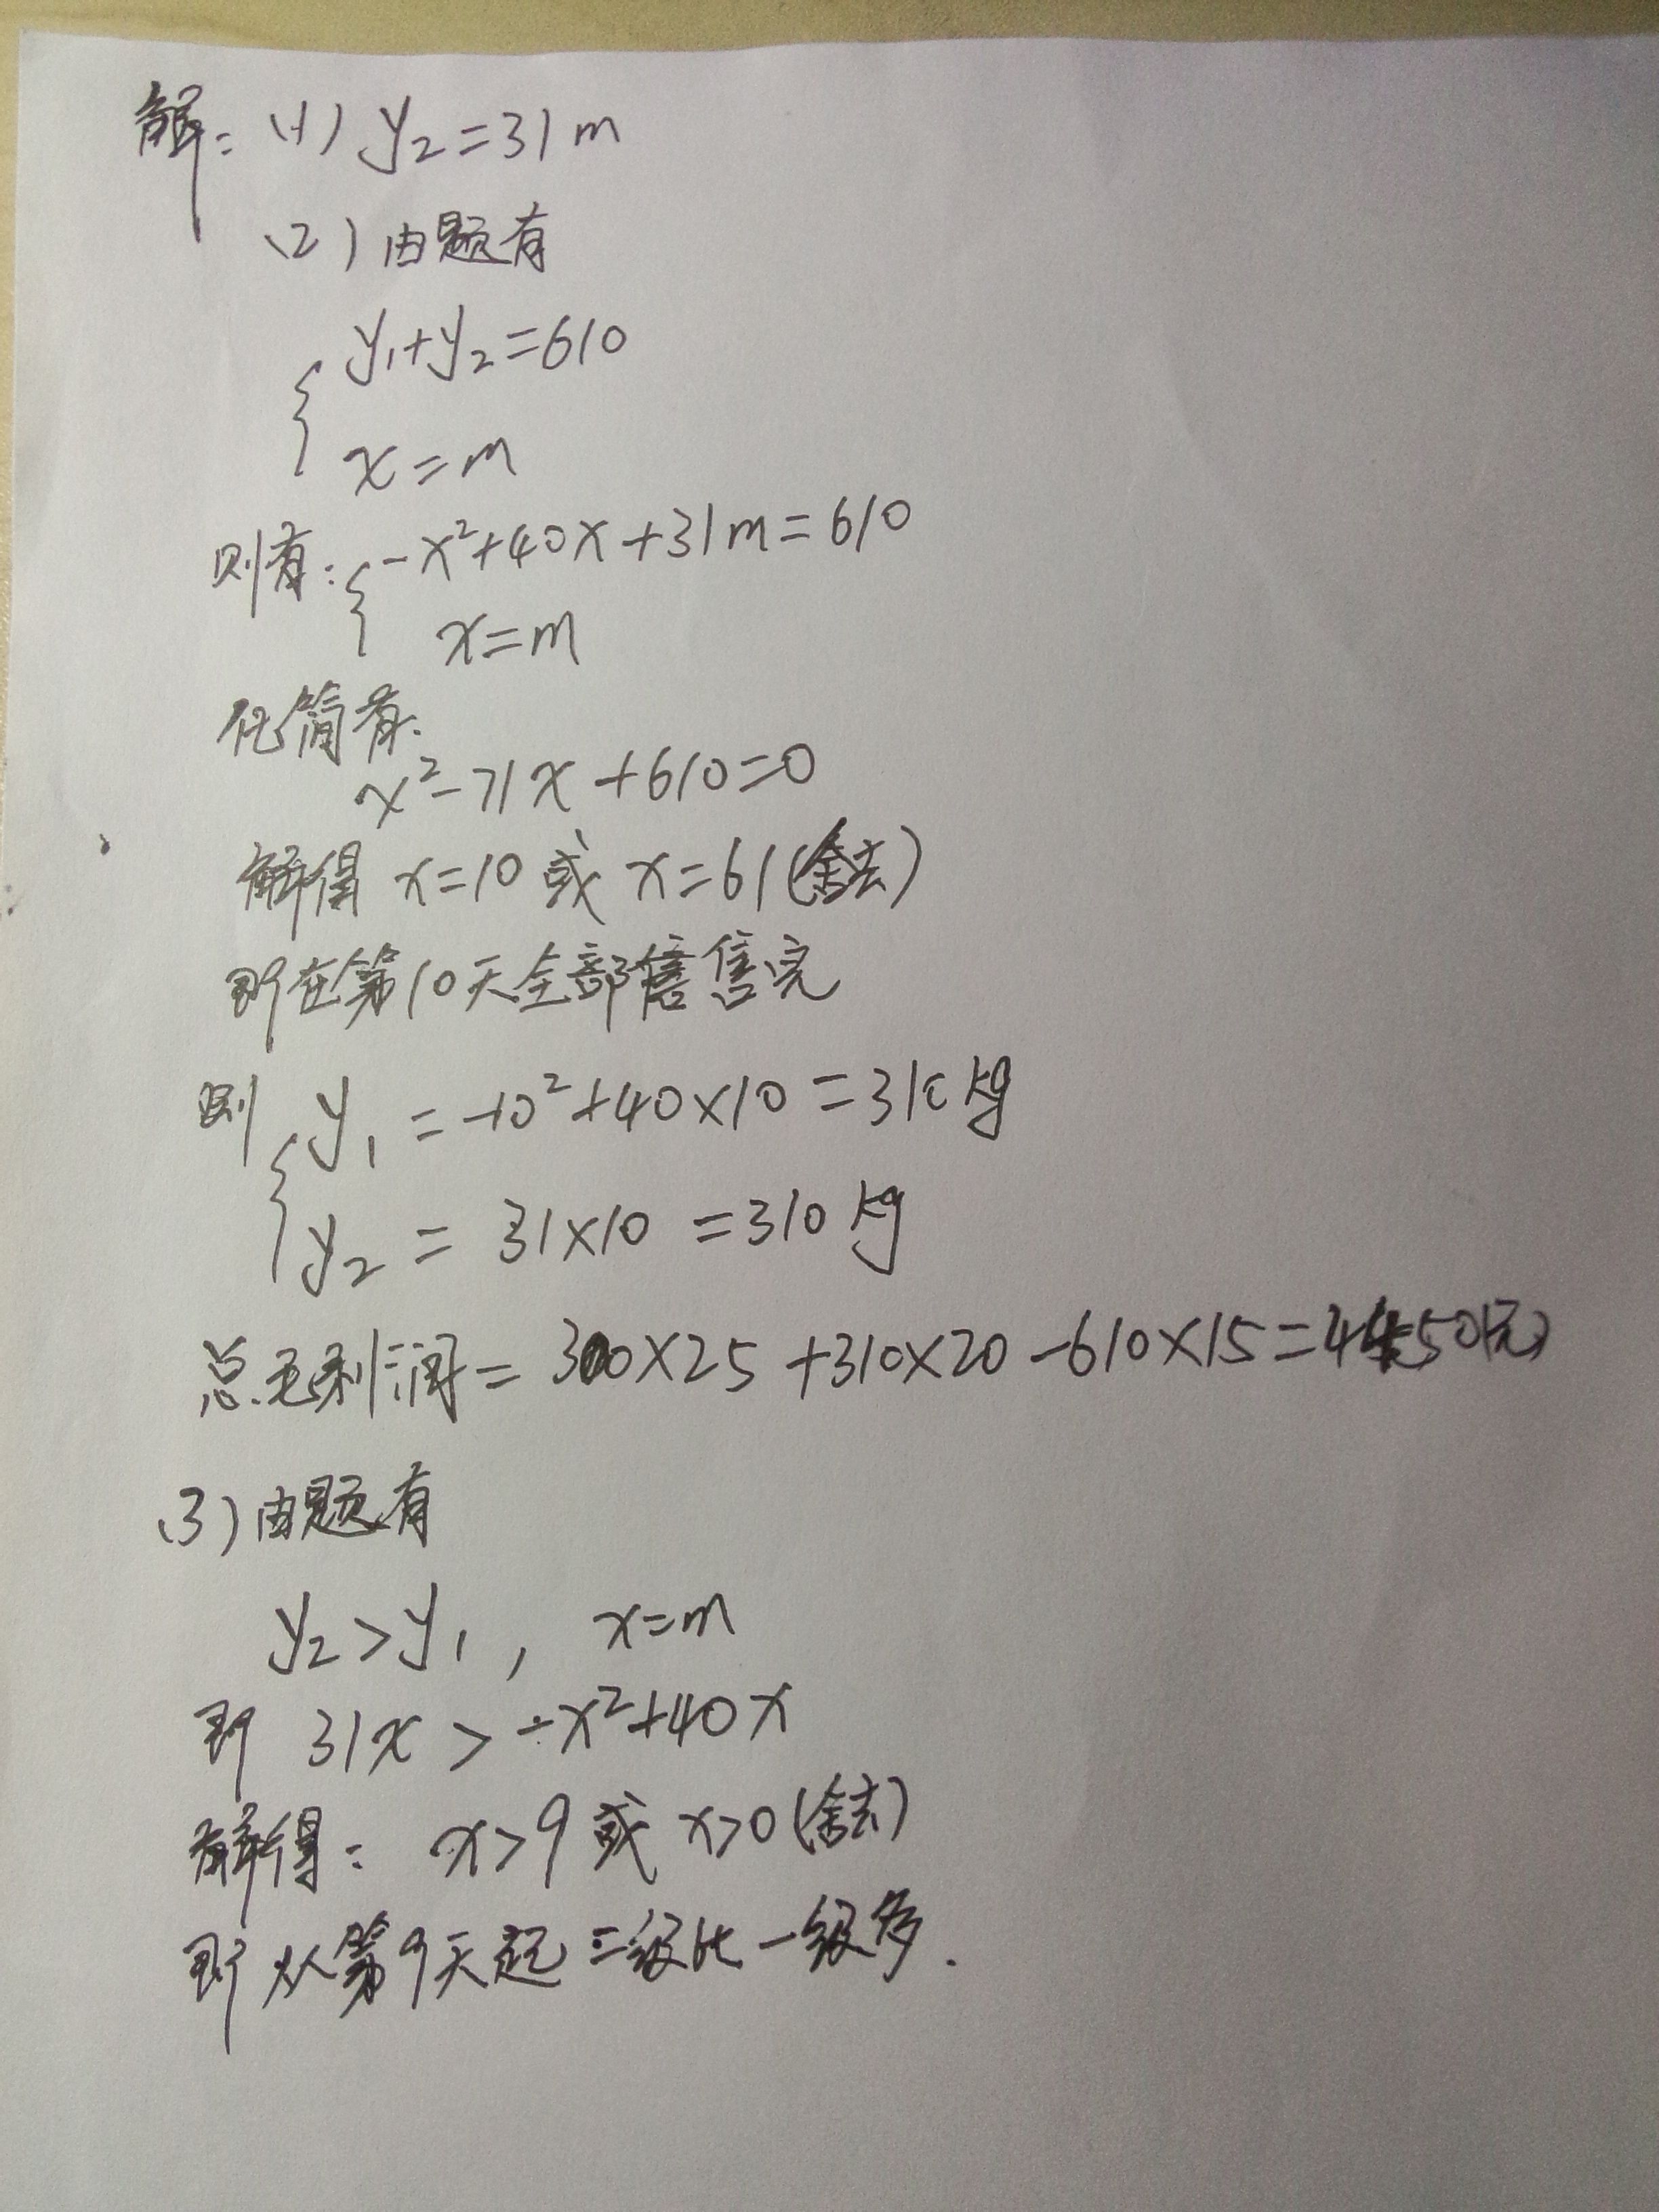 解：(1) y₂=31m
(2)由题有
{ y₁+y₂=610
x=m
则有：{ -x²+40x+31m=610
x=m
化简有:
x²-71x+610=0
解得 x=10 或 x=61(舍去)
即在第10天全部售完
则 { y₁=-10²+40×10=310kg
y₂=31×10=310kg
总毛利润=300×25+310×20-610×15=4450(元)
(3)由题有
y₂>y₁, x=m
即 31x>-x²+40x
解得：x>9 或 x>0(舍去)
即从第9天起二级比一级多.